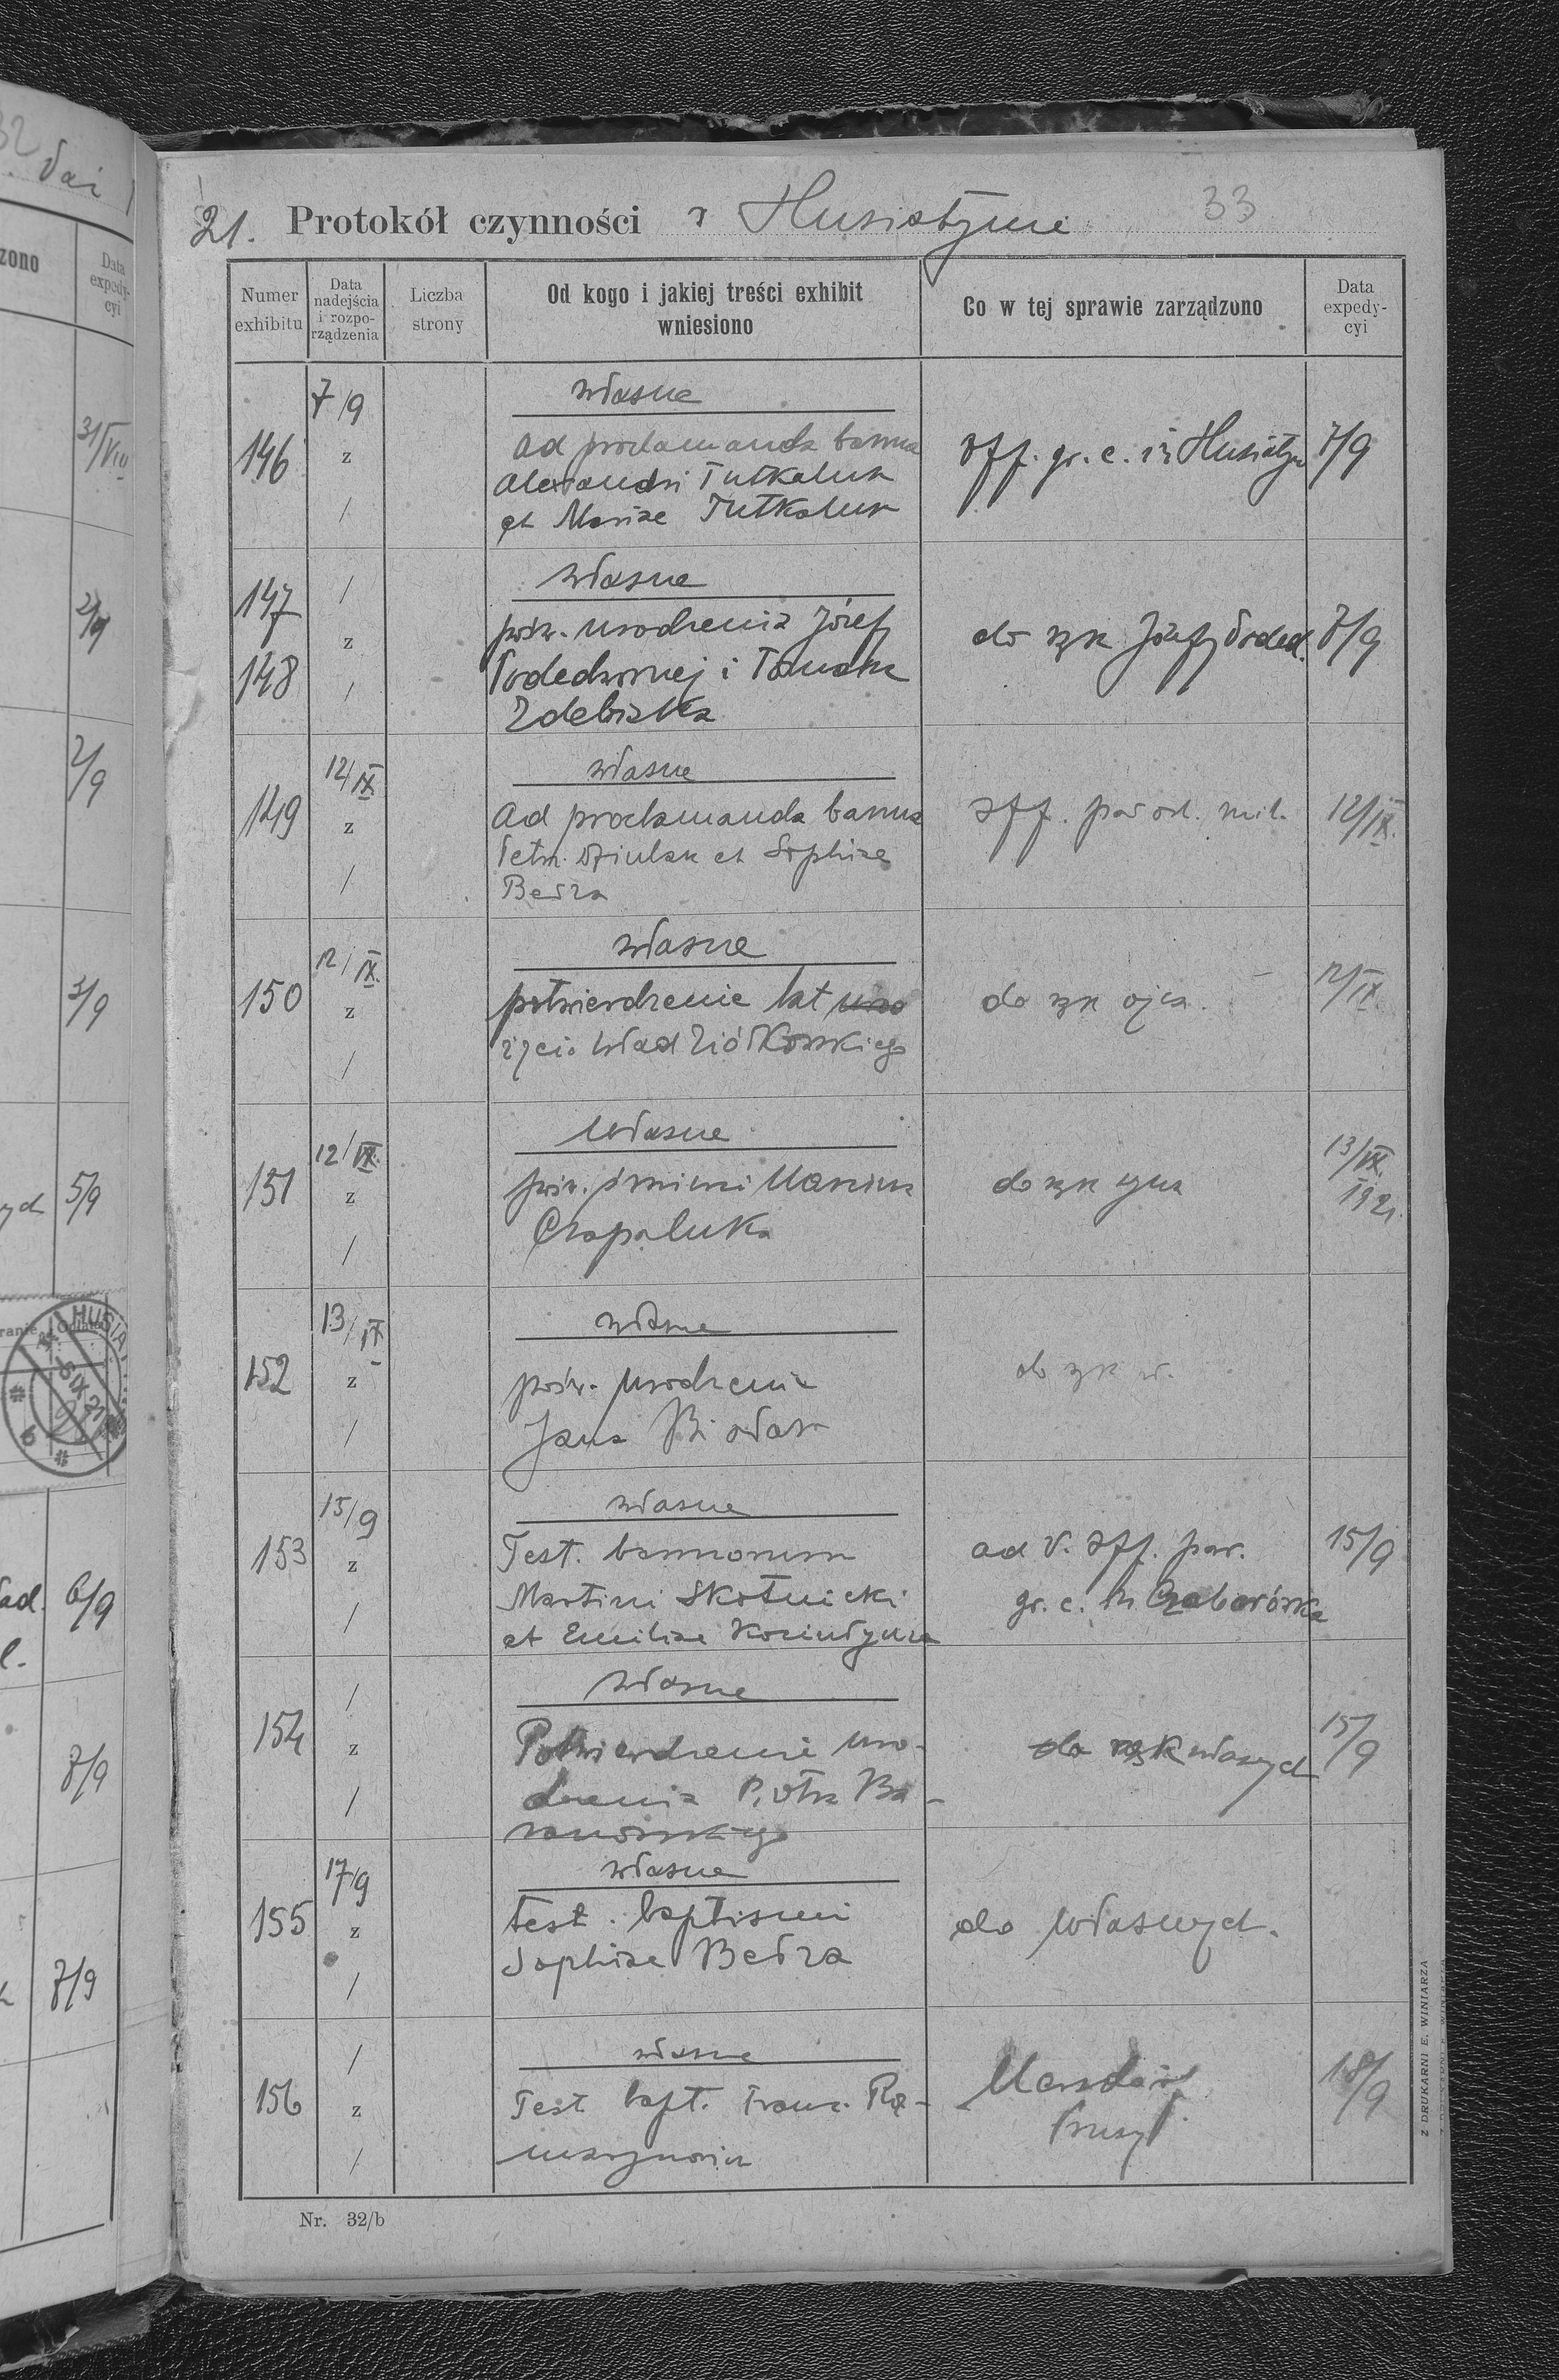 32
dai
zono
Data
expedy-
cyi
31/VIII
2/9
2/9
3/9
5/9
6/9
7/9
7/9
HUSIAT
21. Protokół czynności w Husiatynie 33
Numer
exhibitu
Data
nadejścia
i rozpo-
rządzenia
Liczba
strony
Od kogo i jakiej treści exhibit
wniesiono
Co w tej sprawie zarządzono
Data
expedy-
cyi
146
7/9
z
/
własne
ad proclamanda banna
Alexandri Tutkaluk
et Mariae Tutkaluk
Off. gr. c. in Husiatyn
7/9
147
148
/
z
/
własne
pośw. urodzenia Józefy
Podedwornej i Tomasza
Zdebiaka
do rąk Józefy Poded.
7/9
149
12/IX.
z
/
własne
Ad proclamanda banna
Petri Dziulak et Sophiae
Bedra
Off. par od. mil.
12/IX.
150
12/IX.
z
/
własne
potwierdzenie lat uro
życia Wład Ziółkowskiego
do rąk ojca.
12/IX.
151
12/IX.
z
/
Własne
pośw. śmierci
Czapaluka
do rąk syna
13/IX.
1921
152
13/IX
z
/
własne
pośw. urodzenia
Jana
do rąk w.
153
15/9
z
/
własne
Test. bannorum
Martini Skotnicki
et Emiliae
ad V. Off. par.
gr. c. in Czabarówka
15/9
154
/
z
/
własne
Potwierdzenie uro-
dzenia Piotra Ba-
ranowskiego
do rąk własnych
15/9
155
17/9
z
/
własne
Test. baptismi
Sophiae Bedra
do własnych.
156
/
z
/
własne
Test bapt. Franc.
18/9
Nr. 32/b
Z DRUKARNI E. WINIARZA